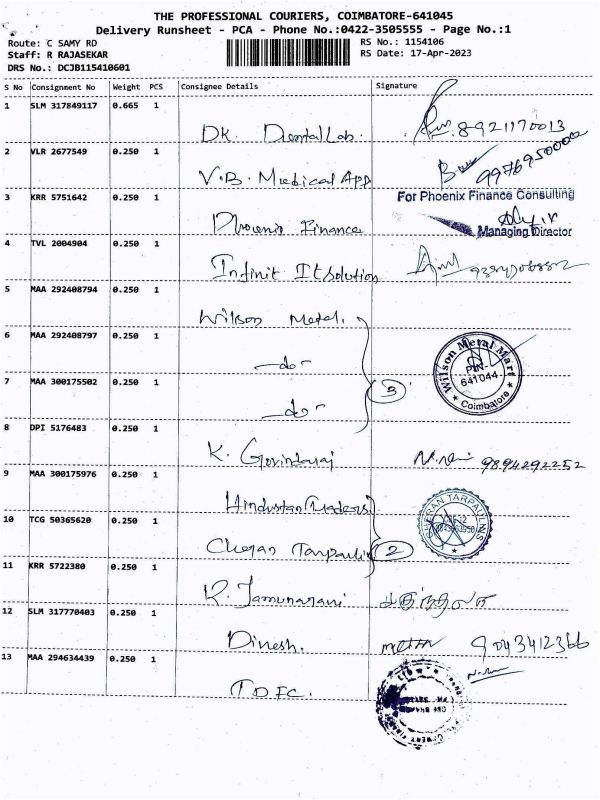 THE PROFESSIONAL COURIERS, COIMBATORE-641045
Delivery Runsheet - PCA - Phone No.:0422-3505555 - Page No.:1
Route: C SAMY RD
RS No.: 1154106
Staff: R RAJASEKAR
RS Date: 17-Apr-2023
DRS No.: DCJB115410601
S No Consignment No Weight PCS Consignee Details Signature
1 SLM 317849117 0.665 1
DK. Dental Lab. 8921170013
2 VLR 2677549 0.250 1
V.B. Medical App 9976950002
3 KRR 5751642 0.250 1
For Phoenix Finance Consulting
Phoenix Finance
Managing Director
4 TVL 2004904 0.250 1
Infinit It Solution
5 MAA 292408794 0.250 1
Wilson Metal.
6 MAA 292408797 0.250 1
-do-
Wilson Metal Mart
PIN-
641044
Coimbatore
7 MAA 300175502 0.250 1
-do- 3
8 DPI 5176483 0.250 1
K. Govindaraj 9894292252
9 MAA 300175976 0.250 1
Hindustan Traders
10 TCG 50365620 0.250 1
CHERAN TARPAULINS
Cheran Tarpaulin 2
11 KRR 5722380 0.250 1
R. Jamunarani
12 SLM 317770403 0.250 1
Dinesh. 9043412366
13 MAA 294634439 0.250 1
T D F C.